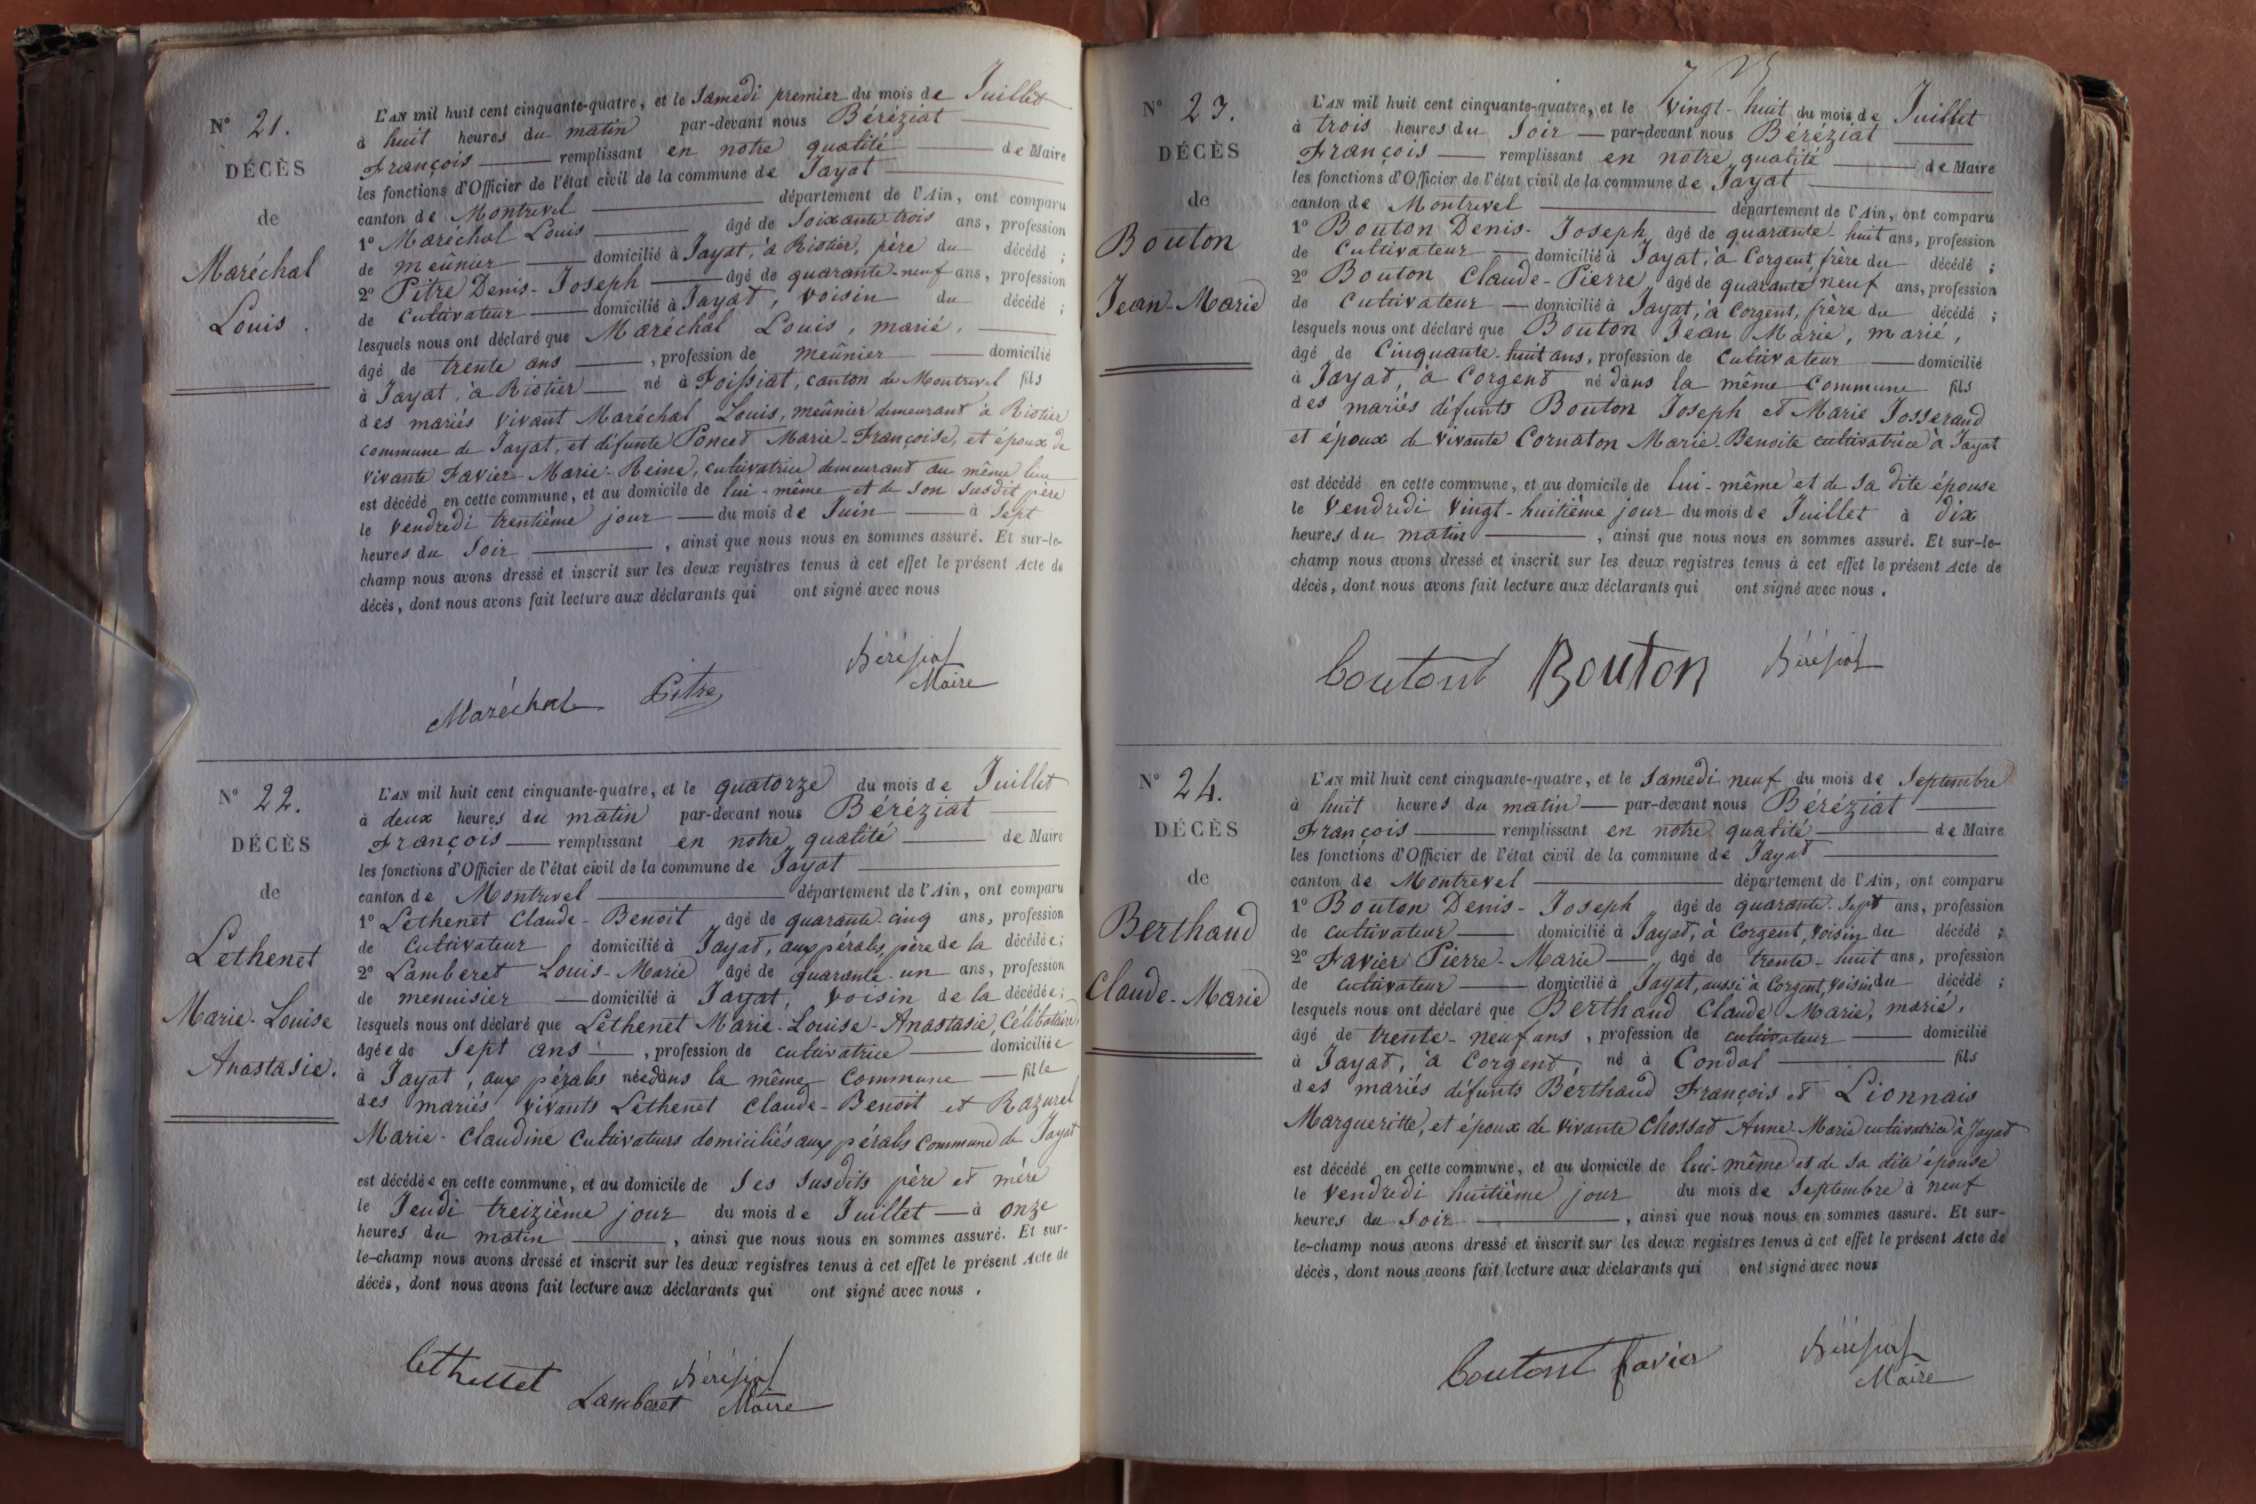 N° 21.
DÉCÈS
de
Maréchal
Louis.
L'AN mil huit cent cinquante-quatre, et le Samedi premier du mois de Juillet
à huit heures du matin par-devant nous Béréziat
François remplissant en notre qualité de Maire
les fonctions d'Officier de l'état civil de la commune de Jayat
canton de Montrevel département de l'Ain, ont comparu
1° Maréchal Louis âgé de Soixante trois ans, profession
de meûnier domicilié à Jayat, à Riotier, père du décédé ;
2° Pitre Denis-Joseph âgé de quarante-neuf ans, profession
de Cultivateur domicilié à Jayat, voisin du décédé ;
lesquels nous ont déclaré que Maréchal Louis, marié,
âgé de trente ans, profession de meûnier domicilié
à Jayat, à Riotier né à Foissiat, canton de Montrevel fils
des mariés vivant Maréchal Louis, meûnier demeurant à Riotier
commune de Jayat, et défunte Poncet Marie-Françoise, et époux de
vivante Favier Marie-Reine, cultivatrice demeurant au même lieu
est décédé en cette commune, et au domicile de lui-même et de son susdit père
le Vendredi trentième jour du mois de Juin à Sept
heures du Soir, ainsi que nous nous en sommes assuré. Et sur-le-
champ nous avons dressé et inscrit sur les deux registres tenus à cet effet le présent Acte de
décès, dont nous avons fait lecture aux déclarants qui ont signé avec nous
Maréchal Pitre Béréziat
Maire
N° 22.
DÉCÈS
de
Lethenet
Marie-Louise
Anastasie.
L'AN mil huit cent cinquante-quatre, et le quatorze du mois de Juillet
à deux heures du matin par-devant nous Béréziat
François remplissant en notre qualité de Maire
les fonctions d'Officier de l'état civil de la commune de Jayat
canton de Montrevel département de l'Ain, ont comparu
1° Lethenet Claude-Benoit âgé de quarante-cinq ans, profession
de Cultivateur domicilié à Jayat, aux pérales, père de la décédée ;
2° Lamberet Louis-Marie âgé de quarante-un ans, profession
de menuisier domicilié à Jayat, voisin de la décédée ;
lesquels nous ont déclaré que Lethenet Marie-Louise-Anastasie, Célibataire,
âgée de Sept ans, profession de cultivatrice domiciliée
à Jayat, aux pérales née dans la même commune fille
des mariés vivants Lethenet Claude-Benoit et Razurel
Marie-Claudine Cultivateurs domiciliés aux pérales commune de Jayat
est décédée en cette commune, et au domicile de Ses susdits père et mère
le Jeudi treizième jour du mois de Juillet à onze
heures du matin, ainsi que nous nous en sommes assuré. Et sur-
le-champ nous avons dressé et inscrit sur les deux registres tenus à cet effet le présent Acte de
décès, dont nous avons fait lecture aux déclarants qui ont signé avec nous.
Lethenet Béréziat
Lamberet Maire
N° 23.
DÉCÈS
de
Bouton
Jean-Marie
L'AN mil huit cent cinquante-quatre, et le Vingt-huit du mois de Juillet
à trois heures du Soir par-devant nous Béréziat
François remplissant en notre qualité de Maire
les fonctions d'Officier de l'état civil de la commune de Jayat
canton de Montrevel département de l'Ain, ont comparu
1° Bouton Denis-Joseph âgé de quarante-huit ans, profession
de Cultivateur domicilié à Jayat, à Corgent, frère du décédé ;
2° Bouton Claude-Pierre âgé de quarante neuf ans, profession
de cultivateur domicilié à Jayat, à Corgent, frère du décédé ;
lesquels nous ont déclaré que Bouton Jean Marie, marié,
âgé de Cinquante-huit ans, profession de Cultivateur domicilié
à Jayat, à Corgent né dans la même commune fils
des mariés défunts Bouton Joseph et Marie Josserand
et époux de vivante Cornaton Marie-Benoite cultivatrice à Jayat
est décédé en cette commune, et au domicile de lui-même et de sa dite épouse
le Vendredi Vingt-huitième jour du mois de Juillet à dix
heures du matin, ainsi que nous nous en sommes assuré. Et sur-le-
champ nous avons dressé et inscrit sur les deux registres tenus à cet effet le présent Acte de
décès, dont nous avons fait lecture aux déclarants qui ont signé avec nous.
Boutont Bouton Béréziat
N° 24.
DÉCÈS
de
Berthaud
Claude-Marie
L'AN mil huit cent cinquante-quatre, et le Samedi neuf du mois de Septembre
à huit heures du matin par-devant nous Béréziat
François remplissant en notre qualité de Maire
les fonctions d'Officier de l'état civil de la commune de Jayat
canton de Montrevel département de l'Ain, ont comparu
1° Bouton Denis-Joseph âgé de quarante-sept ans, profession
de cultivateur domicilié à Jayat, à Corgent, voisin du décédé ;
2° Favier Pierre-Marie âgé de trente-huit ans, profession
de cultivateur domicilié à Jayat, aussi à Corgent, voisin du décédé ;
lesquels nous ont déclaré que Berthaud Claude Marie, marié,
âgé de trente-neuf ans, profession de cultivateur domicilié
à Jayat, à Corgent, né à Condal fils
des mariés défunts Berthaud François et Lionnais
Margueritte, et époux de vivante Chossat Anne-Marie cultivatrice à Jayat
est décédé en cette commune, et au domicile de lui-même et de sa dite épouse
le Vendredi huitième jour du mois de Septembre à neuf
heures du Soir, ainsi que nous nous en sommes assuré. Et sur-
le-champ nous avons dressé et inscrit sur les deux registres tenus à cet effet le présent Acte de
décès, dont nous avons fait lecture aux déclarants qui ont signé avec nous
Boutont favier Béréziat
Maire